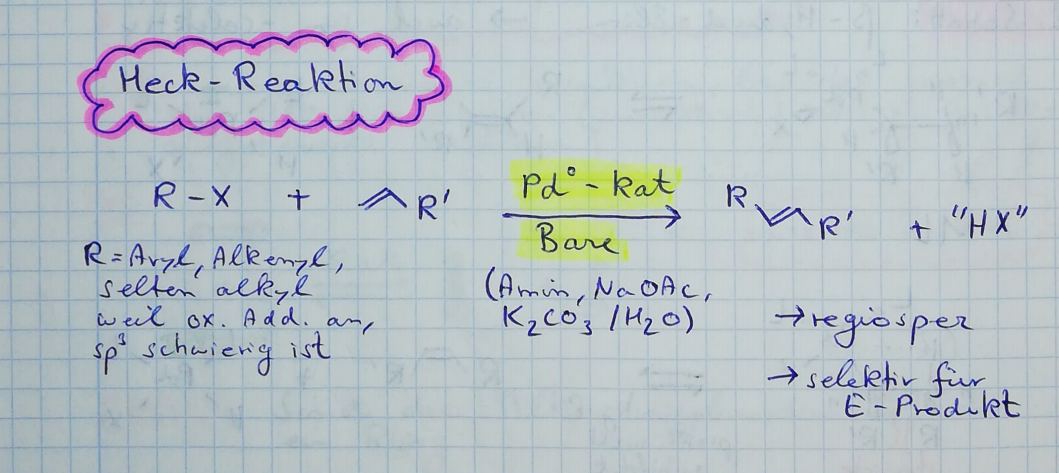 Heck-Reaktion
R-X + R' Pd⁰-kat R R' + "HX"
Base
R=Aryl, Alkenyl,
selten alkyl
weil ox. Add. an,
sp³ schwierig ist
(Amin, NaOAc,
K₂CO₃/H₂O)
→regiospez
→selektiv für
E-Produkt